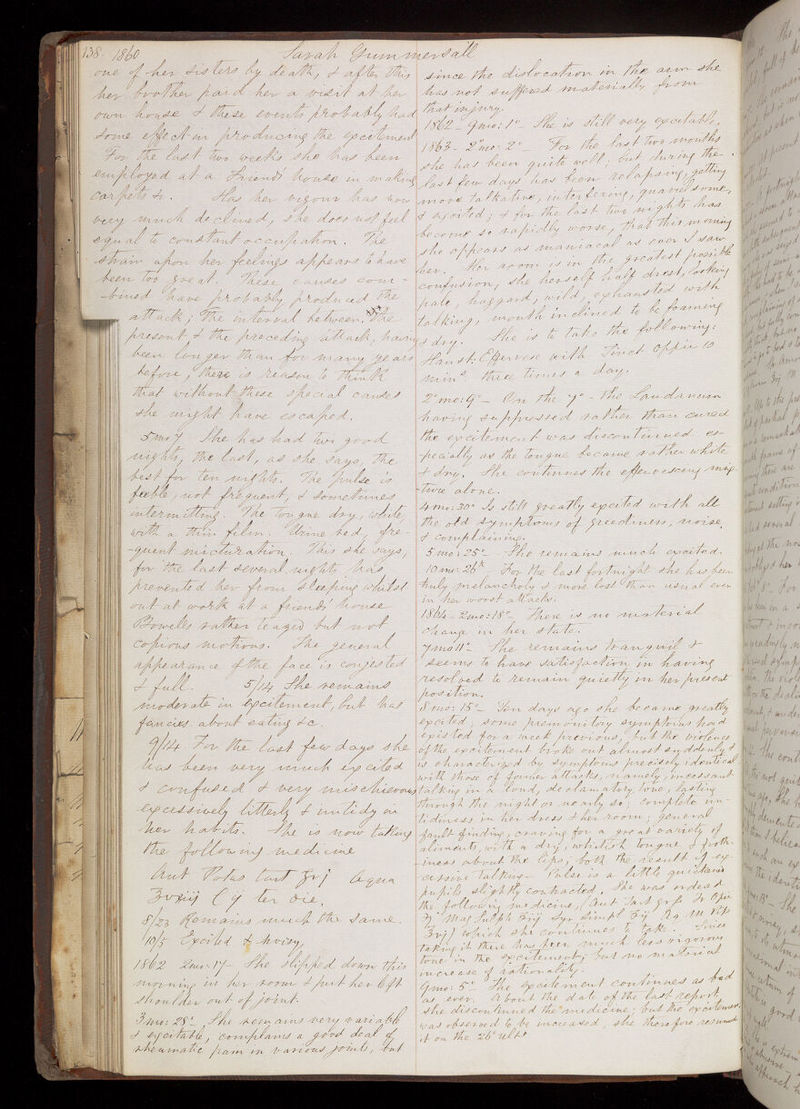 138. 1860
Sarah Gummersall
one of her sisters by death, & after this
her brother paid her a visit at her
own house & these events probably had
some effect in producing the excitement
For the last two weeks she has been
employed at a friends' house in making
carpets &c. Has her vigour has now
very much declined, she does not feel
equal to constant occupation. The
strain upon her feelings appears to have
been too great. These causes com-
-bined have probably produced the
attack; The interval between the
present, & the preceding attack, having
been longer than for many years
before, there is reason to think
that without these special causes
she might have escaped.
5 mo 7 She has had two good
nights, the last, as she says, the
best for ten nights. The pulse is
feeble, not frequent, & sometimes
intermitting. The tongue dry, white,
with a thin film. Urine red, fre-
-quent micturation. This she says,
for the last several nights has
prevented her from sleeping whilst
out at work at a friends' house
Bowells rather teazed but not
copious motions. The general
appearance of the face is congested
& full. 5/14 She remains
moderate in excitement, but has
fancies about eating &c.
9/14 For the last few days she
has been very much excited
& confused & very mischievous
excessively litterly & untidy in
her habits. She is now taking
the following medicine
Ant Potas tart Aqua
ter die.
8/23 Remains much the same.
10/5 Excited & noisy.
1862 2mo: 17 She slipped down this
morning in her room & put her left
shoulder out of joint.
3 mo: 28th She remains very variable
& excitable, complains a good deal of
rheumatic pain in various joints, but
since the dislocation in the arm she
has not suffered materially from
that injury.
1862 - 9mo: 1st - She is still very excitable.
1863 - 2mo: 2d - For the last two months
she has been quite well; but during the
last few days has been relapsing, getting
more talkative, interfering, quarrelsome,
& excited; & for the last two nights has
become so rapidly worse, that this morning
she appears as maniacal as ever I saw
her. Her room is in the greatest possible
confusion, she herself half drest, looking
pale, haggard, wild, exhausted with
talking, mouth inclined to be foaming
& dry. She is to take the following:
Haust: Efferves with Tinct Opii
three times a day.
2mo: 9th - On the 7th - the Laudanum
having suppressed rather than cured
the excitement was discontinued es-
pecially as the tongue became rather white
& dry. She continues the effervescing mix-
-ture alone.
4 mo: 30th Is still greatly excited with all
the old symptoms of greediness, noise,
& complaining.
5 mo: 25th She remains much excited.
10 mo: 26th For the last fortnight she has been
truly melancholy & more lost than usual even
in her worst attacks.
1864 - 2mo: 18th There is no material
change in her state.
7mo 11th She remains tranquil &
seems to have satisfaction in having
resolved to remain quietly in her present
position.
8 mo: 15th - Ten days ago she became greatly
excited, some premonitory symptoms had
existed for a week previous, but the violence
of the excitement broke out almost suddenly &
is characterized by symptoms precisely identical
with those of former attacks, namely, incessant
talking in a loud, declamatory tone, lasting
through the night or nearly so; complete un-
tidiness in her dress & her room; general
fault finding, craving for a great variety of
aliments, with a dry, whitish tongue & froth-
-iness about the lips, both the result of ex-
cessive talking - Pulse is a little quickened
pupils slightly contracted. She was ordered
the following medicine, (Ant tart
Mag Sulph Syr Simpl
which she continues to take. Since
taking it there has been much less vigorous
tone in the excitement, but no material
increase of rationality.
9mo: 5th The excitement continues as bad
as ever. About the date of the last report,
she discontinued the medicine; but the excitement
was observed to be increased, she therefore resumed
it on the 26th ult.